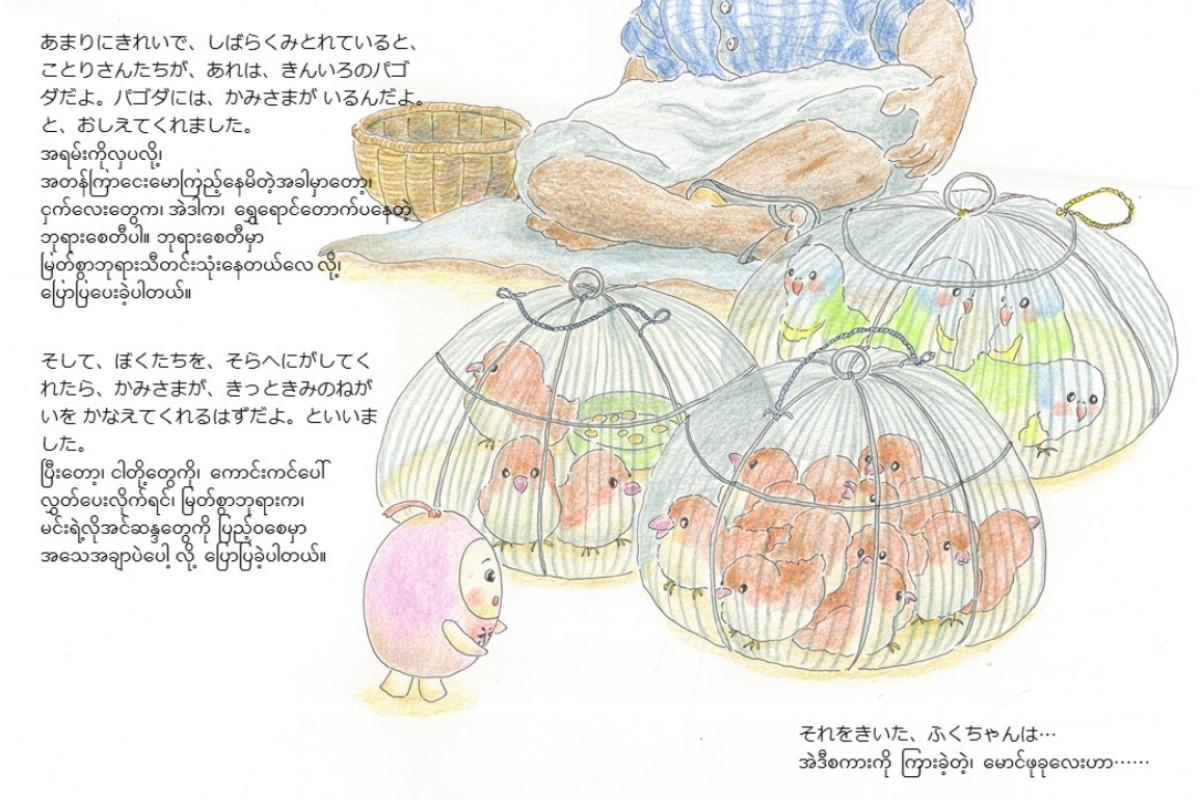 あまりにきれいで、しばらくみとれていると、
ことりさんたちが、あれは、きんいろのパゴ
ダだよ。パゴダには、かみさまが いるんだよ。
と、おしえてくれました。
အရမ်းကိုလှပလို့၊
အတန်ကြာငေးမောကြည့်နေမိတဲ့အခါမှာတော့၊
ငှက်လေးတွေက၊ အဲဒါက၊ ရွှေရောင်တောက်ပနေတဲ့
ဘုရားစေတီပါ။ ဘုရားစေတီမှာ
မြတ်စွာဘုရားသီတင်းသုံးနေတယ်လေ လို့၊
ပြောပြပေးခဲ့ပါတယ်။
そして、ぼくたちを、そらへにがしてく
れたら、かみさまが、きっときみのねが
いを かなえてくれるはずだよ。といいま
した。
ပြီးတော့၊ ငါတို့တွေကို၊ ကောင်းကင်ပေါ်
လွှတ်ပေးလိုက်ရင်၊ မြတ်စွာဘုရားက၊
မင်းရဲ့လိုအင်ဆန္ဒတွေကို ပြည့်ဝစေမှာ
အသေအချာပဲပေါ့ လို့ ပြောပြခဲ့ပါတယ်။
それをきいた、ふくちゃんは…
အဲဒီစကားကို ကြားခဲ့တဲ့၊ မောင်ဖုခုလေးဟာ……